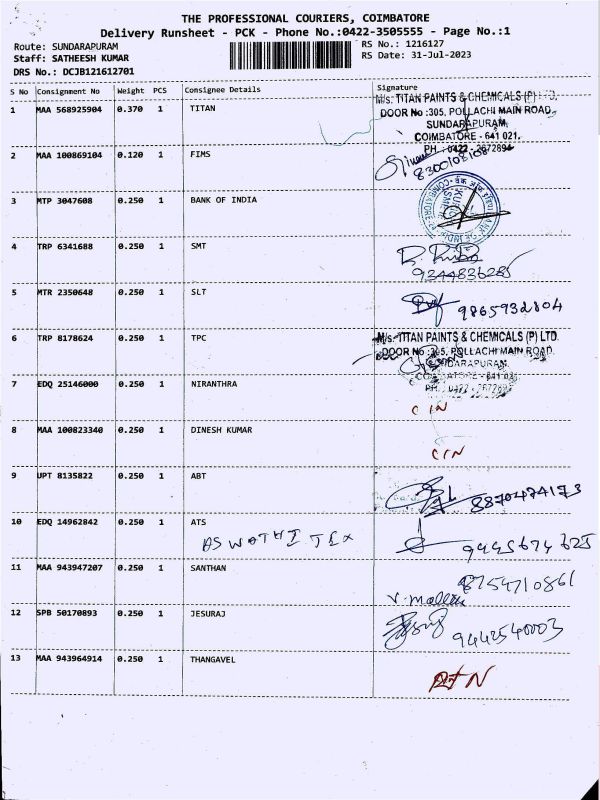 THE PROFESSIONAL COURIERS, COIMBATORE
Delivery Runsheet - PCK - Phone No.:0422-3505555 - Page No.:1
Route: SUNDARAPURAM
RS No.: 1216127
Staff: SATHEESH KUMAR
RS Date: 31-Jul-2023
DRS No.: DCJB121612701
S No Consignment No Weight PCS Consignee Details Signature
1 MAA 568925904 0.370 1 TITAN
M/s. TITAN PAINTS & CHEMICALS (P) LTD,
DOOR No :305, POLLACHI MAIN ROAD,
SUNDARAPURAM,
COIMBATORE - 641 021.
PH : 0422 - 2672894
2 MAA 100869104 0.120 1 FIMS
8300108108
3 MTP 3047608 0.250 1 BANK OF INDIA
4 TRP 6341688 0.250 1 SMT
9344836285
5 MTR 2350648 0.250 1 SLT
9865932804
6 TRP 8178624 0.250 1 TPC
M/s. TITAN PAINTS & CHEMICALS (P) LTD.
DOOR No :305, POLLACHI MAIN ROAD,
SUNDARAPURAM,
7 EDQ 25146000 0.250 1 NIRANTHRA
C I N
8 MAA 100823340 0.250 1 DINESH KUMAR
C I N
9 UPT 8135822 0.250 1 ABT
8870474173
10 EDQ 14962842 0.250 1 ATS
ASWATHI TEX
9445674625
11 MAA 943947207 0.250 1 SANTHAN
8754710861
12 SPB 50170893 0.250 1 JESURAJ
9442540003
13 MAA 943964914 0.250 1 THANGAVEL